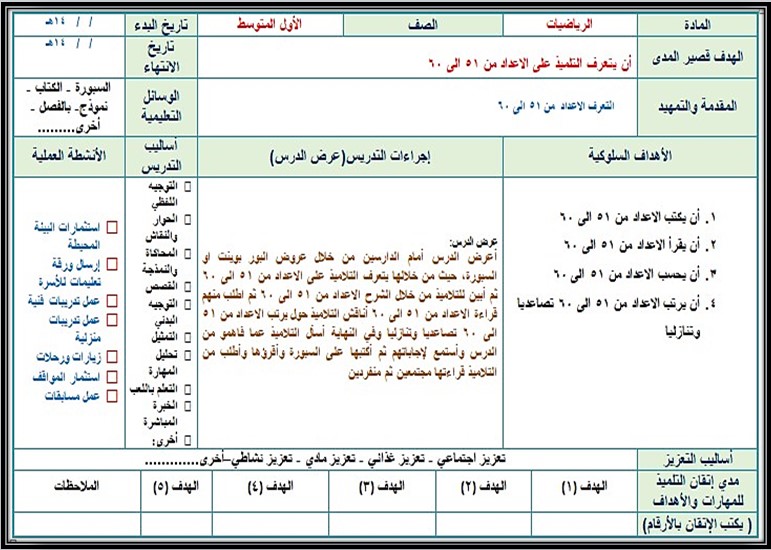 المادة الرياضيات الصف الأول المتوسط تاريخ البدء / / ١٤هـ
الهدف قصير المدى أن يتعرف التلميذ على الاعداد من ٥١ الى ٦٠ تاريخ الانتهاء / / ١٤هـ
المقدمة والتمهيد التعرف الاعداد من ٥١ الى ٦٠ الوسائل التعليمية
السبورة - الكتاب -
نموذج- بالفصل -
أخرى.........
الأهداف السلوكية إجراءات التدريس(عرض الدرس) أساليب التدريس الأنشطة العملية
١. أن يكتب الاعداد من ٥١ الى ٦٠
٢. أن يقرأ الاعداد من ٥١ الى ٦٠
٣. أن يحسب الاعداد من ٥١ الى ٦٠
٤. أن يرتب الاعداد من ٥١ الى ٦٠ تصاعديا
وتنازليا
عرض الدرس:
أعرض الدرس أمام الدارسين من خلال عروض البور بوينت او
السبورة، حيث من خلالها يتعرف التلاميذ على الاعداد من ٥١ الى ٦٠
ثم أبين للتلاميذ من خلال الشرح الاعداد من ٥١ الى ٦٠ ثم اطلب منهم
قراءة الاعداد من ٥١ الى ٦٠ أناقش التلاميذ حول يرتب الاعداد من ٥١
الى ٦٠ تصاعديا وتنازليا وفي النهاية أسأل التلاميذ عما فاهمو من
الدرس وأستمع لإجاباتهم ثم أكتبها على السبورة وأقرؤها وأطلب من
التلاميذ قراءتها مجتمعين ثم منفردين
التوجيه
اللفظي
الحوار
والنقاش
المحاكاة
والنمذجة
القصص
التوجيه
البدني
التمثيل
تحليل
المهارة
التعلم باللعب
الخبرة
المباشرة
أخرى:
استثمارات البيئة
المحيطة
إرسال ورقة
تعليمات للأسرة
عمل تدريبات فنية
عمل تدريبات
منزلية
زيارات ورحلات
استثمار المواقف
عمل مسابقات
أساليب التعزيز تعزيز اجتماعي - تعزيز غذائي - تعزيز مادي - تعزيز نشاطي-أخرى.............
مدي إتقان التلميذ
للمهارات والأهداف
الهدف (١) الهدف (٢) الهدف (٣) الهدف (٤) الهدف (٥) الملاحظات
( يكتب الإتقان بالأرقام)